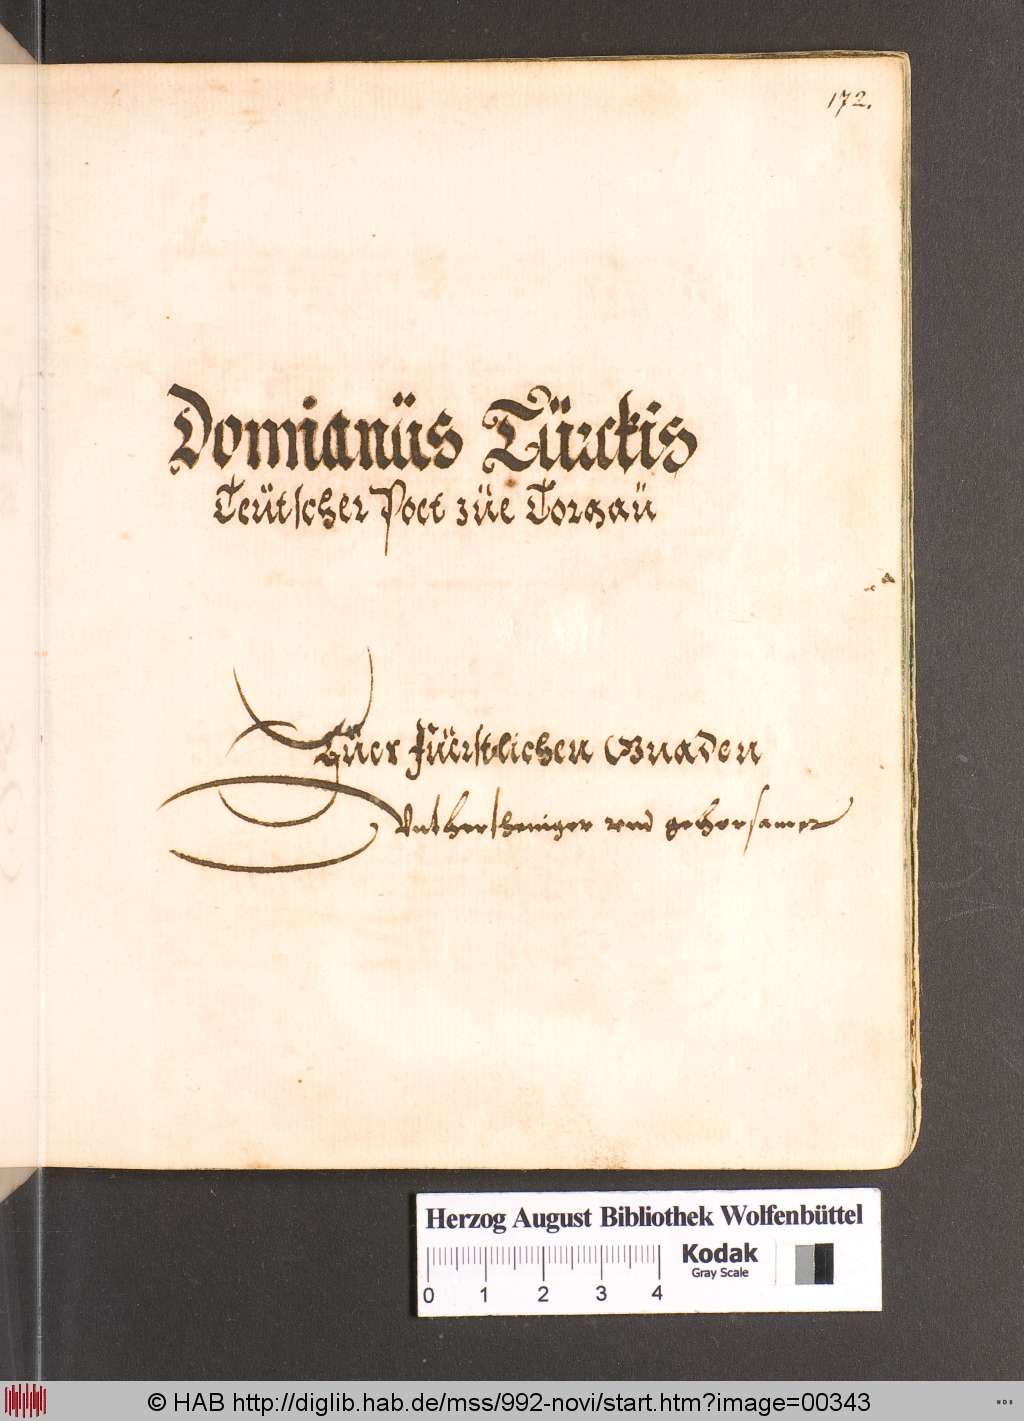 172.
Domianüs Türckis
Teütscher Poet züe Torgaü
Eüer Füerstlichen Gnaden
Vnthertheniger vnd gehorsamer
Herzog August Bibliothek Wolfenbüttel
Kodak
Gray Scale
0 1 2 3 4
© HAB http://diglib.hab.de/mss/992-novi/start.htm?image=00343